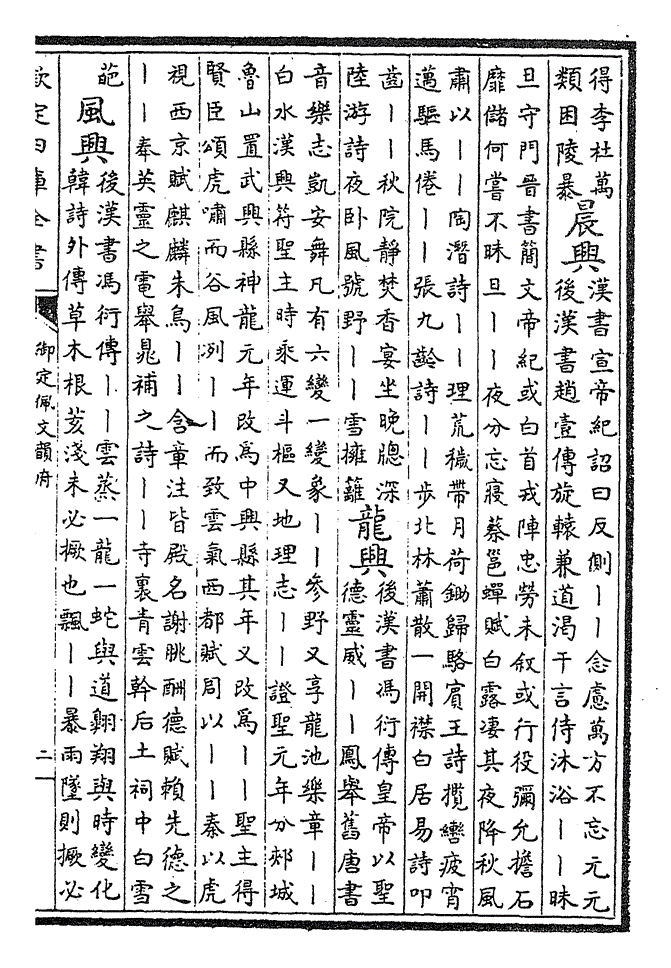 得李杜萬
類困陵暴
晨興
漢書宣帝紀詔曰反側丨丨念慮萬方不忘元元
後漢書趙壹傳旋轅兼道渴于言侍沐浴丨丨昧
旦守門晉書簡文帝紀或白首戎陣忠勞未叙或行役彌允擔石
靡儲何嘗不昧旦丨丨夜分忘寢蔡邕蟬賦白露凄其夜降秋風
肅以丨丨陶潛詩丨丨理荒穢帶月荷鋤歸駱賓王詩攬轡疲宵
邁驅馬倦丨丨張九齡詩丨丨步北林蕭散一開襟白居易詩叩
齒丨丨秋院靜焚香宴坐晚牕深
陸游詩夜卧風號野丨丨雪擁籬
龍興
後漢書馮衍傳皇帝以聖
德靈威丨丨鳳舉舊唐書
音樂志凱安舞凡有六變一變象丨丨參野又享龍池樂章丨丨
白水漢興符聖主時乘運斗樞又地理志丨丨證聖元年分郟城
魯山置武興縣神龍元年改爲中興縣其年又改爲丨丨聖主得
賢臣頌虎嘯而谷風冽丨丨而致雲氣西都賦周以丨丨秦以虎
視西京賦麒麟朱鳥丨丨含章注皆殿名謝朓酬德賦賴先德之
丨丨奉英靈之電舉晁補之詩丨丨寺裏青雲幹后土祠中白雪
葩
風興
後漢書馮衍傳丨丨雲蒸一龍一蛇與道翺翔與時變化
韓詩外傳草木根荄淺未必撅也飄丨丨暴雨墜則撅必
欽定四庫全書
御定佩文韻府
二